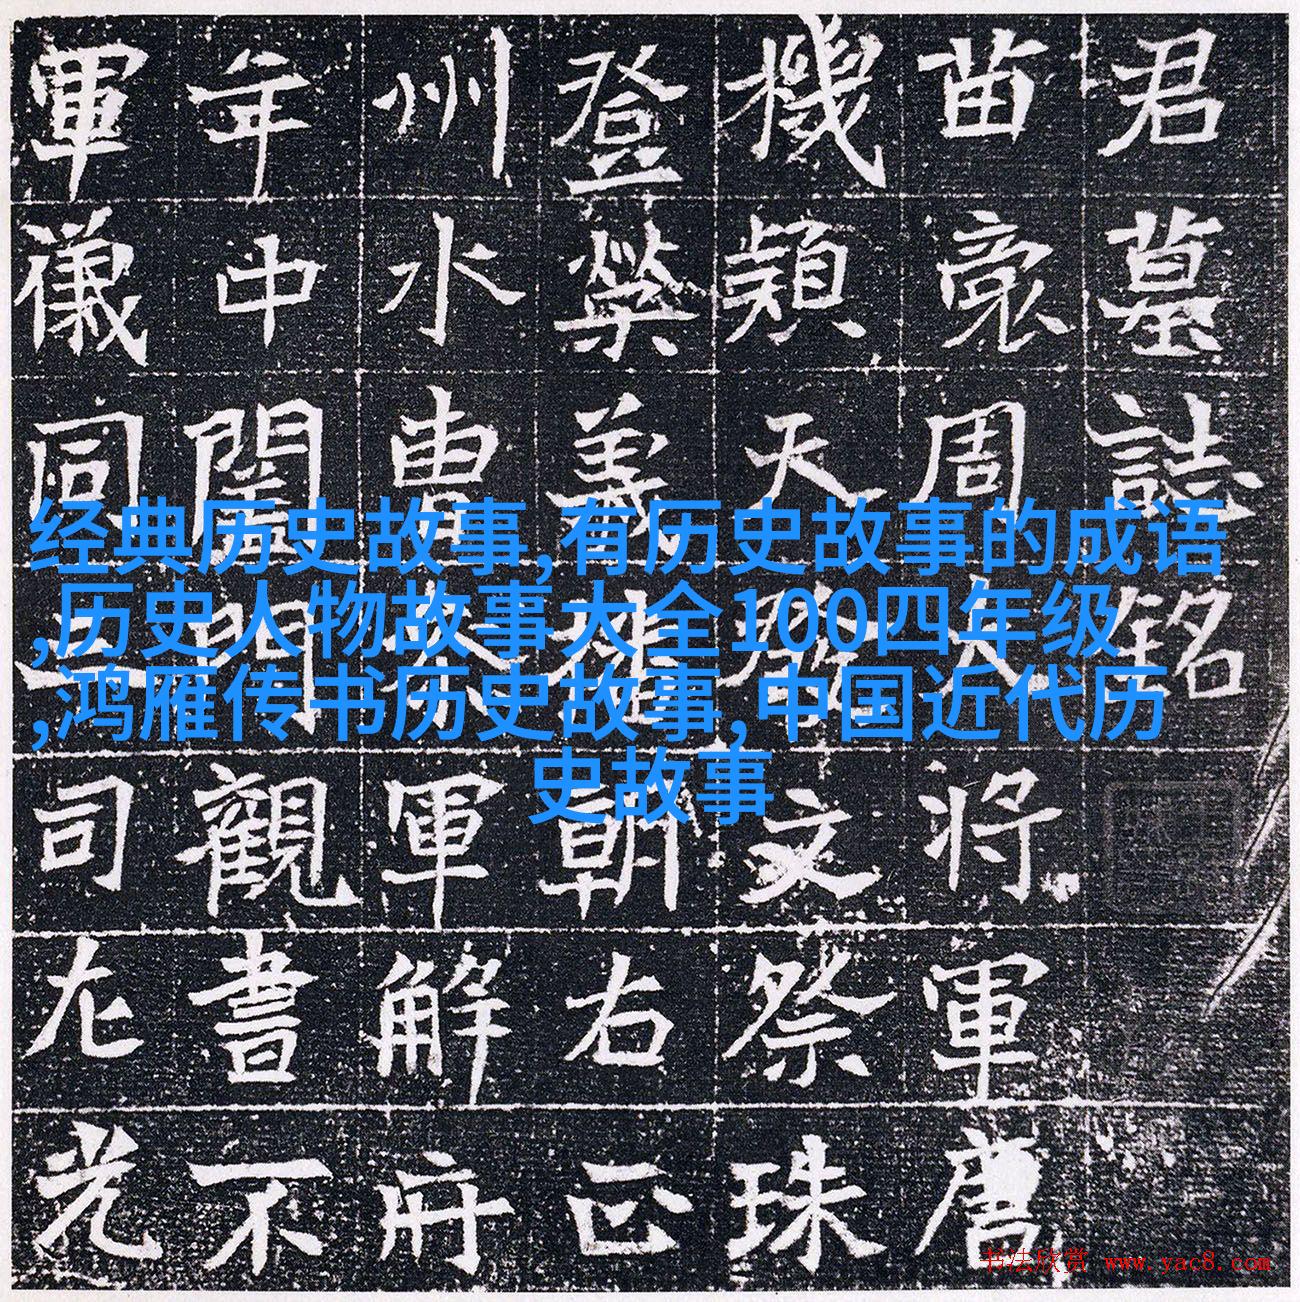 君墓誌銘
苗裔周將軍唐
機穎天文祭珠
登榮義朝右正
州水曹軍解
年中闔門觀書不
軍儀同三司左光
经典历史故事,有历史故事的成语
,历史人物故事大全100四年级
,鸿雁传书历史故事,中国近代历
史故事
书法欣赏 www.yac8.com